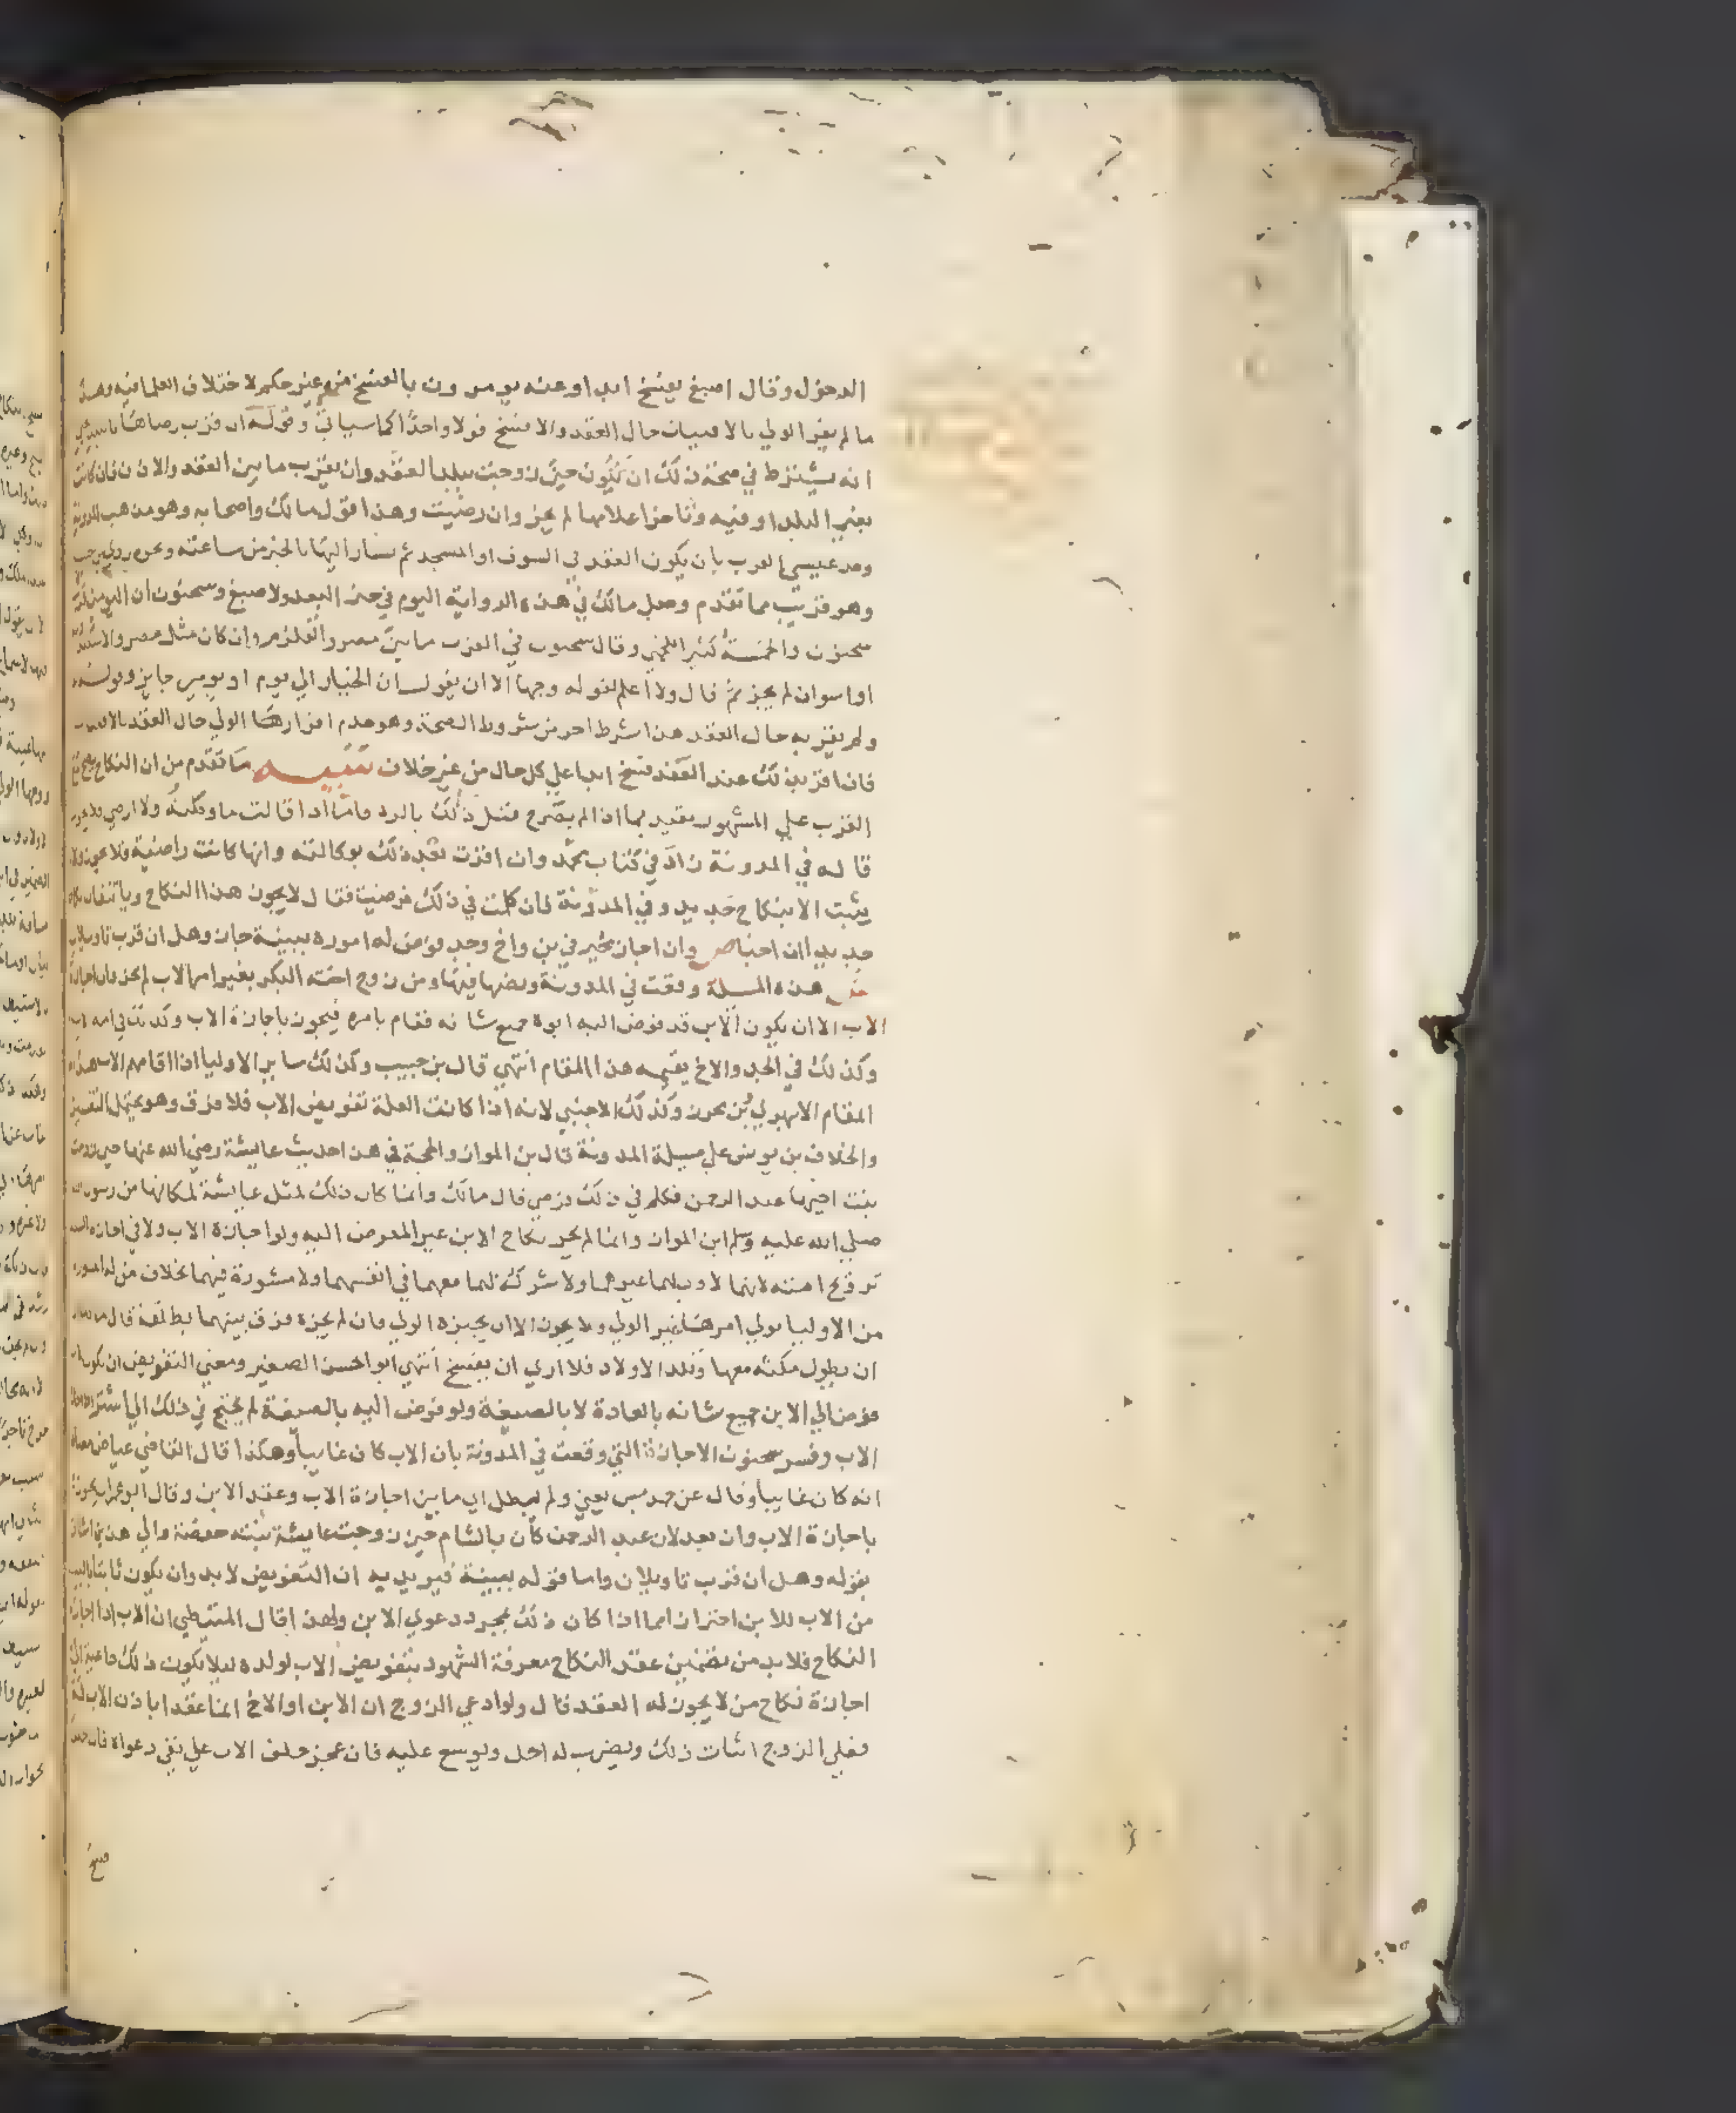 الدخول وقال اصبغ يفسخ ابدا وعنه يومرون بالفسخ من غير حكم لاختلاف العلما فيه وهذا
ما لم يقر الولي بالافتيات حال العقد والا فسخ قولا واحدا كما سياتي وقوله ان قرب رضاها
انه يشترط في صحة ذلك ان تكون حين زوجت ببلد العقد وان يقرب ما بين العقد والاذن فان كانت
بغير البلد او فيه وتاخر اعلامها لم يجز وان رضيت وهذا قول مالك واصحابه وهو مذهب المدونة
وحد عيسى القرب بان يكون العقد في السوق او المسجد ثم يسار اليها بالخبر من ساعته ونحوه
وهو قريب مما تقدم وجعل مالك في هذه الرواية اليوم في حيز البعد ولاصبغ وسحنون ان اليومين
سحنون والخمسة كثير اللخمي وقال سحنون في القرب ما بين مصر والقلزم وان كان مثل مصر والاسكندرية
او اسوان لم يجز ثم قال ولا اعلم لقوله وجها الا ان يقول ان الخيار الي يوم او يومين جايز وقوله
ولم يقر به حال العقد هذا شرط اخر من شروط الصحة وهو عدم اقرار هذا الولي حال العقد
فان اقر بذلك عند العقد فسخ ابدا علي كل حال من غير خلاف تنبيه ما تقدم من ان النكاح يصح
القرب علي المشهور مقيد بما اذا لم يصرح قبل ذلك بالرد واما اذا قالت ما وكلته ولا ارضي
قاله في المدونة زاد في كتاب محمد وان اقرت بعد ذلك بوكالته وانها كانت راضية فلا يجوز ولا
يثبت الا بنكاح جديد وفي المدونة فان كلمت في ذلك فرضيت فقال لا يجوز هذا النكاح
جديدا ان احبا ص وان اجاز مجبر في بن واخ وجد فوض له اموره ببينة جاز وهل ان قرب تاويلان
ش هذه المسيلة وقعت في المدونة ونصها فيها ومن زوج اخته البكر بغير امر الاب لم يجز
الاب الا ان يكون الابن قد فوض اليه ابوه جميع شانه فقام بامره فيجوز باجازة الاب وكذلك في امة
وكذلك في الجد والاخ يقيمه هذا المقام انتهي قال بن حبيب وكذلك ساير الاوليا اذا اقامهم الاب هذا
المقام الابهري بن محرز وكذلك الاجنبي لانه اذا كانت العلة تفويض الاب فلا فرق وهو يحتمل التفسير
والخلاف بن يونس علي مسيلة المدونة قال بن المواز والحجة في هذا حديث عايشة رضي الله عنها حين زوجت
بنت اخيها عبد الرحمن فكلم في ذلك فرضي قال مالك وانما كان ذلك لمثل عايشة لمكانها من رسول الله
صلي الله عليه وسلم ابن المواز وانما لم يجز نكاح الابن غير المفوض اليه ولو اجازه الاب ولا في اجازة
تزويج امته لانهما لا ولي لهما غيرهما ولا شرك لهما معهما في انفسهما ولا مشورة فيهما بخلاف من
من الاوليا يولي امرها غير الولي ولا يجوز الا ان يجيزه الولي فان لم يجزه فرق بينهما بطلقة قال
ان يطول مكثه معها وتلد الاولاد فلا اري ان يفسخ انتهي ابو الحسن الصغير ومعني التفويض ان يكون
فوض الي الابن جميع شانه بالعادة لا بالصيغة ولو فوض اليه بالصيغة لم يحتج في ذلك الي
الاب وفسر سحنون الاجازة التي وقعت في المدونة بان الاب كان غايبا وهكذا قال القاضي عياض
انه كان غايبا وقال عن حمديس يعني ولم يطل اي ما بين اجازة الاب وعقد الابن وقال ابو عمران يجوز
باجازة الاب وان بعد لان عبد الرحمن كان بالشام حين زوجت عايشة بنته حفصة والي هذين اشار
بقوله وهل ان قرب تاويلان واما قوله ببينة فيريد به ان التفويض لابد وان يكون ثابتا بالبينة
من الاب للابن احترازا مما اذا كان ذلك بمجرد دعوي الابن ولهذا قال المتيطي ان الاب اذا اجاز
النكاح فلابد من تضمين عقد النكاح معرفة الشهود بتفويض الاب لولده ليلا يكون ذلك داعية الي
اجازة نكاح من لا يجوز له العقد قال ولو ادعي الزوج ان الابن او الاخ انما عقدا باذن الاب له
فعلي الزوج اثبات ذلك ويضرب له اجل ويوسع عليه فان عجز حلف الاب علي نفي دعواه فان حلف
فسخ